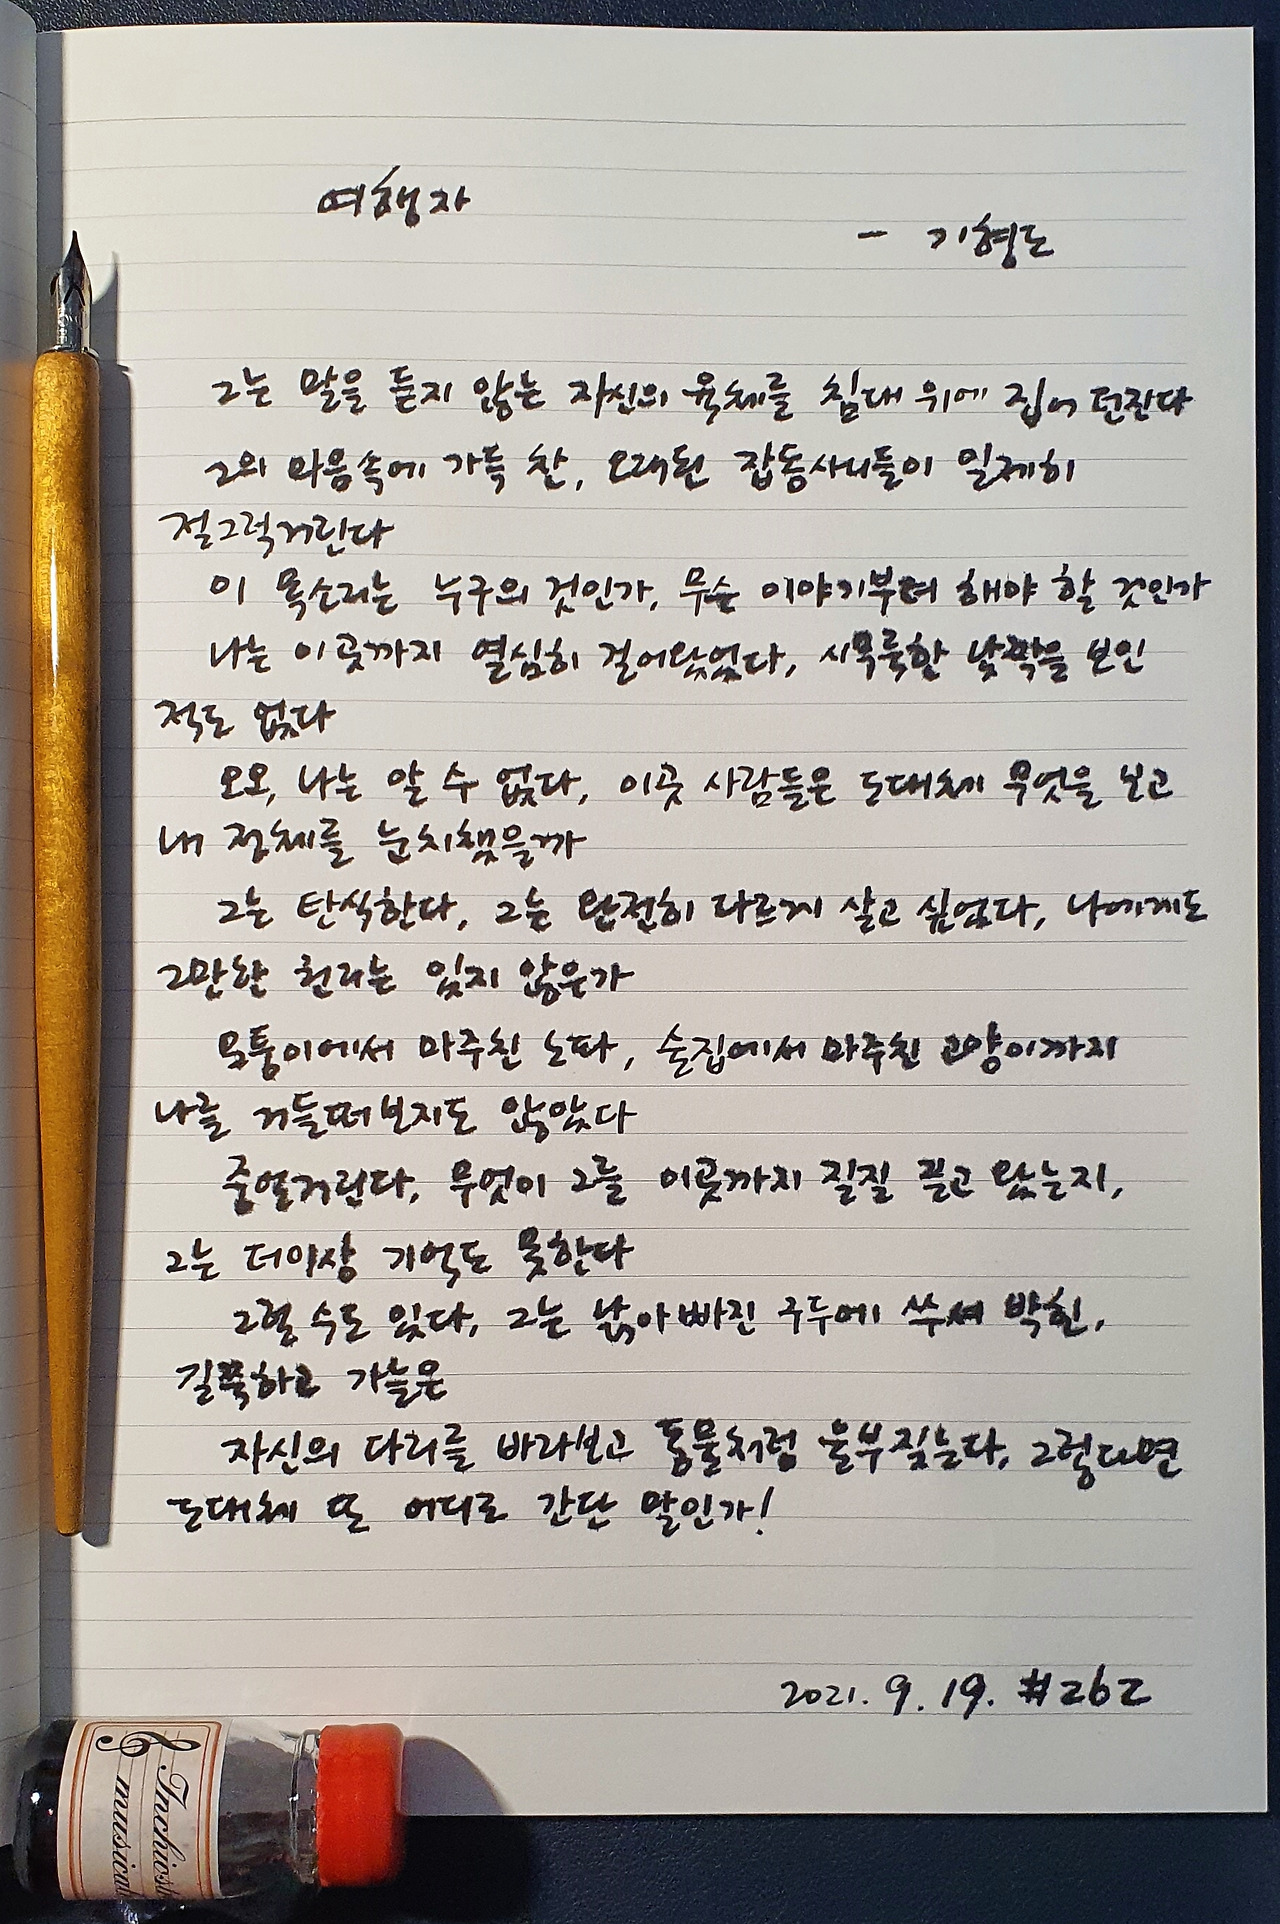 여행자
- 기형도
그는 말을 듣지 않는 자신의 육체를 침대 위에 집어 던진다
그의 마음속에 가득 찬, 오래된 잡동사니들이 일제히
절그럭거린다
이 목소리는 누구의 것인가, 무슨 이야기부터 해야 할 것인가
나는 이곳까지 열심히 걸어왔었다, 시무룩한 낯짝을 보인
적도 없다
오오, 나는 알 수 없다, 이곳 사람들은 도대체 무엇을 보고
내 정체를 눈치챘을까
그는 탄식한다, 그는 완전히 다르게 살고 싶었다, 나에게도
그만한 권리는 있지 않은가
모퉁이에서 마주친 노파, 술집에서 마주친 고양이까지
나를 거들떠보지도 않았다
중얼거린다, 무엇이 그를 이곳까지 질질 끌고 왔는지,
그는 더이상 기억도 못한다
그럴 수도 있다, 그는 낡아빠진 구두에 쑤셔 박힌,
길쭉하고 가늘은
자신의 다리를 바라보고 동물처럼 울부짖는다, 그렇다면
도대체 또 어디로 간단 말인가!
2021. 9. 19. #262